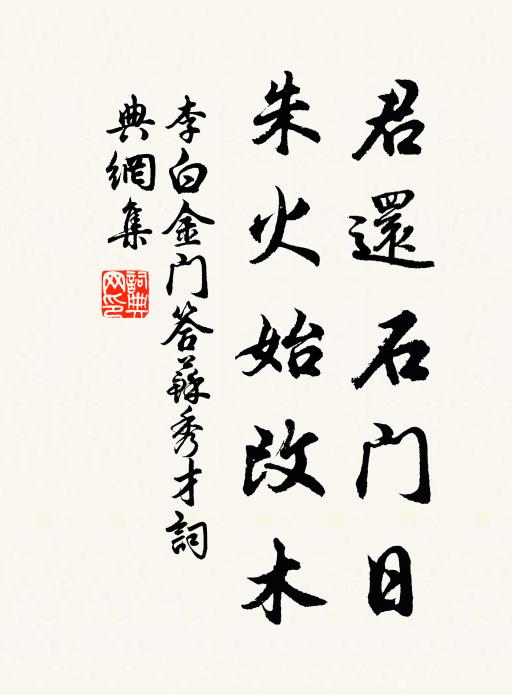 君還石门日
朱火始改木
李白金门答蘇秀才詞
典網集
詞典网印